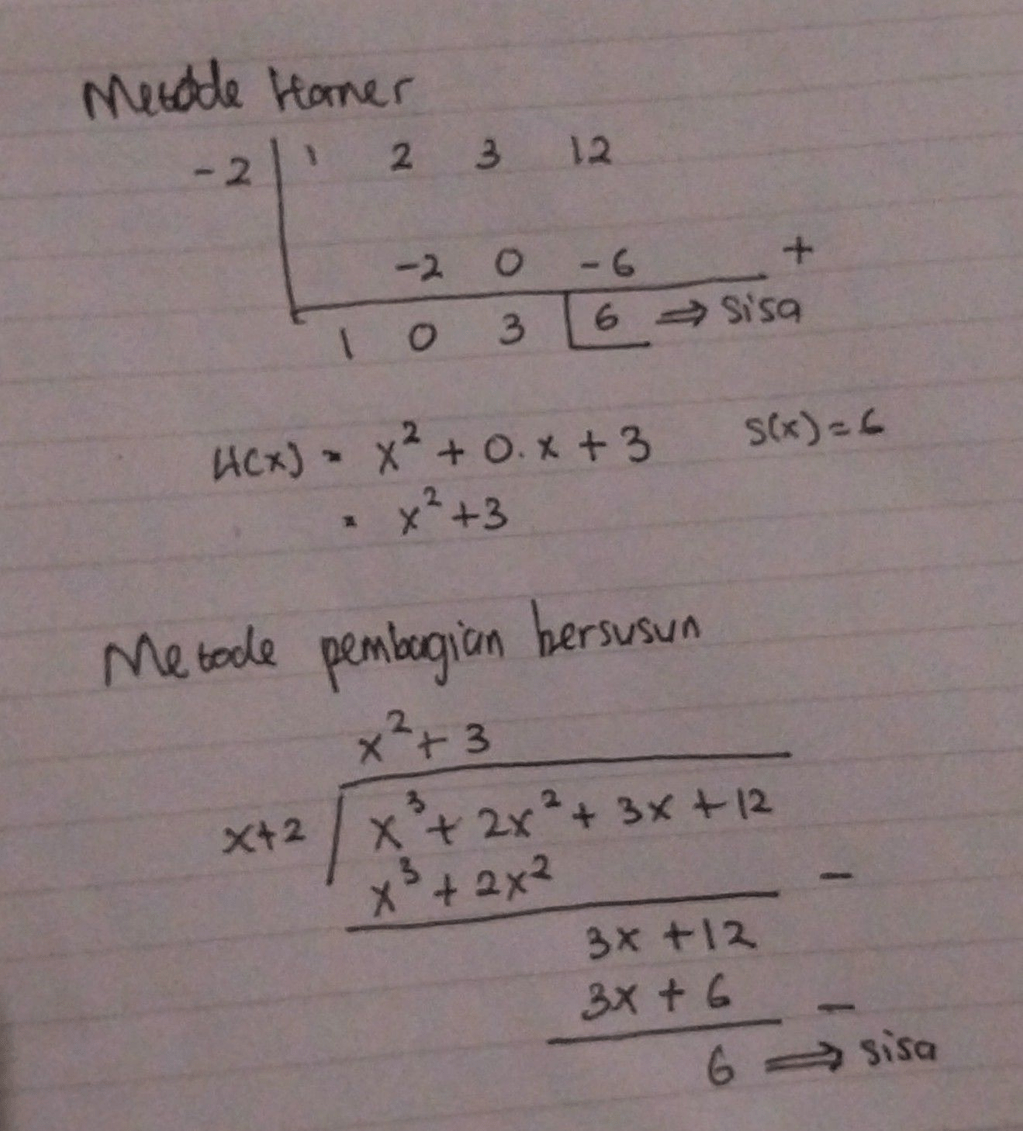 Metode Horner
-2 | 1 2 3 12
-2 0 -6 +
1 0 3 | 6 ⇒ sisa
H(x) = x² + 0.x + 3 S(x) = 6
= x² + 3
Metode pembagian bersusun
x² + 3
x+2 / x³ + 2x² + 3x + 12
x³ + 2x² -
3x + 12
3x + 6 -
6 ⇒ sisa